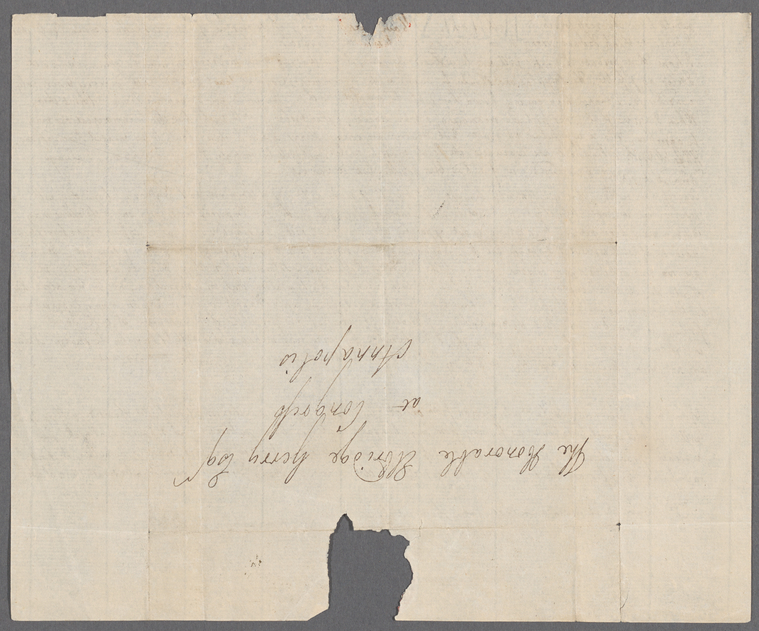 The Honorable Elbridge Gerry Esqr
at Congress
Annapolis